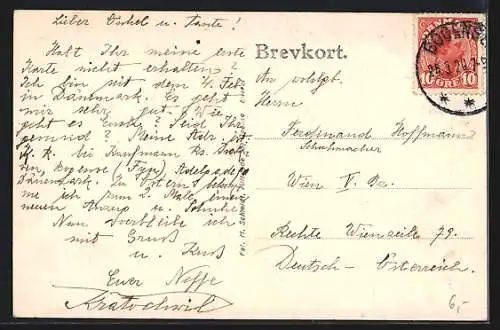 Lieber Onkel u. Tante!
Habt Ihr meine erste
Karte nicht erhalten?
Ich bin mit dem 4. Feb.
in Dänemark. Es geht
mir sehr gut. Wie
geht es Euch? Seid Ihr
gesund? Meine Adr. ist
bei Kaufmann
Bogense (Fyn) Adelgade
Dänemark. Zu Ostern
me ich zum 2. Male einen
neuen Anzug u. Schuhe
Nun verbleibe ich
mit Gruß
u. Kuß
Euer Neffe
Kratochwil
Brevkort.
An wohlgeb.
Herrn
Ferdinand Hoffmann
Schuhmacher
Wien V. Bez.
Rechte Wienzeile 79.
Deutsch-Österreich.
BOGENSE
10 ØRE 10
6,-